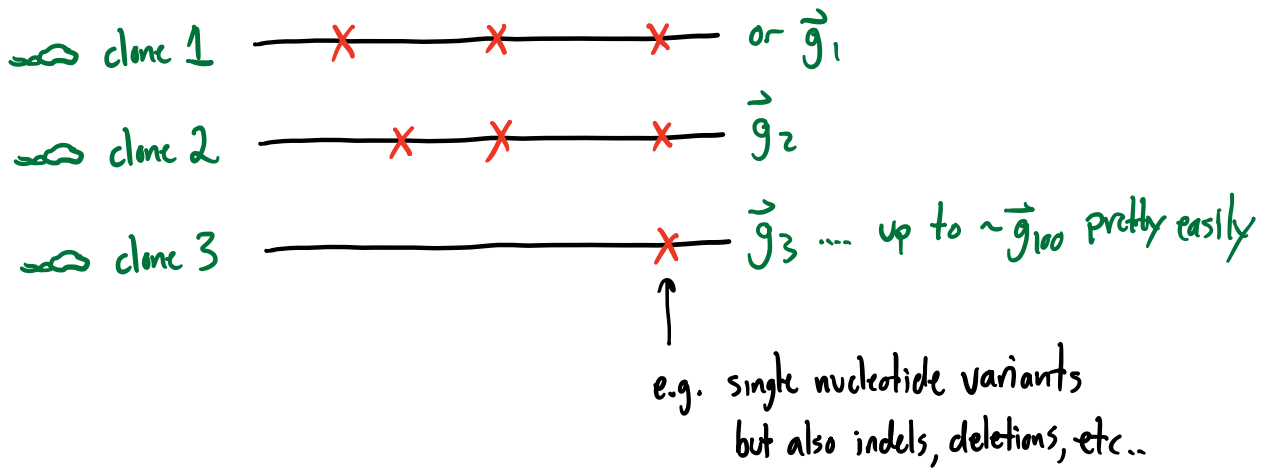 clone 1 or g⃗₁
clone 2 g⃗₂
clone 3 g⃗₃ .... up to ~g⃗₁₀₀ pretty easily
e.g. single nucleotide variants
but also indels, deletions, etc..